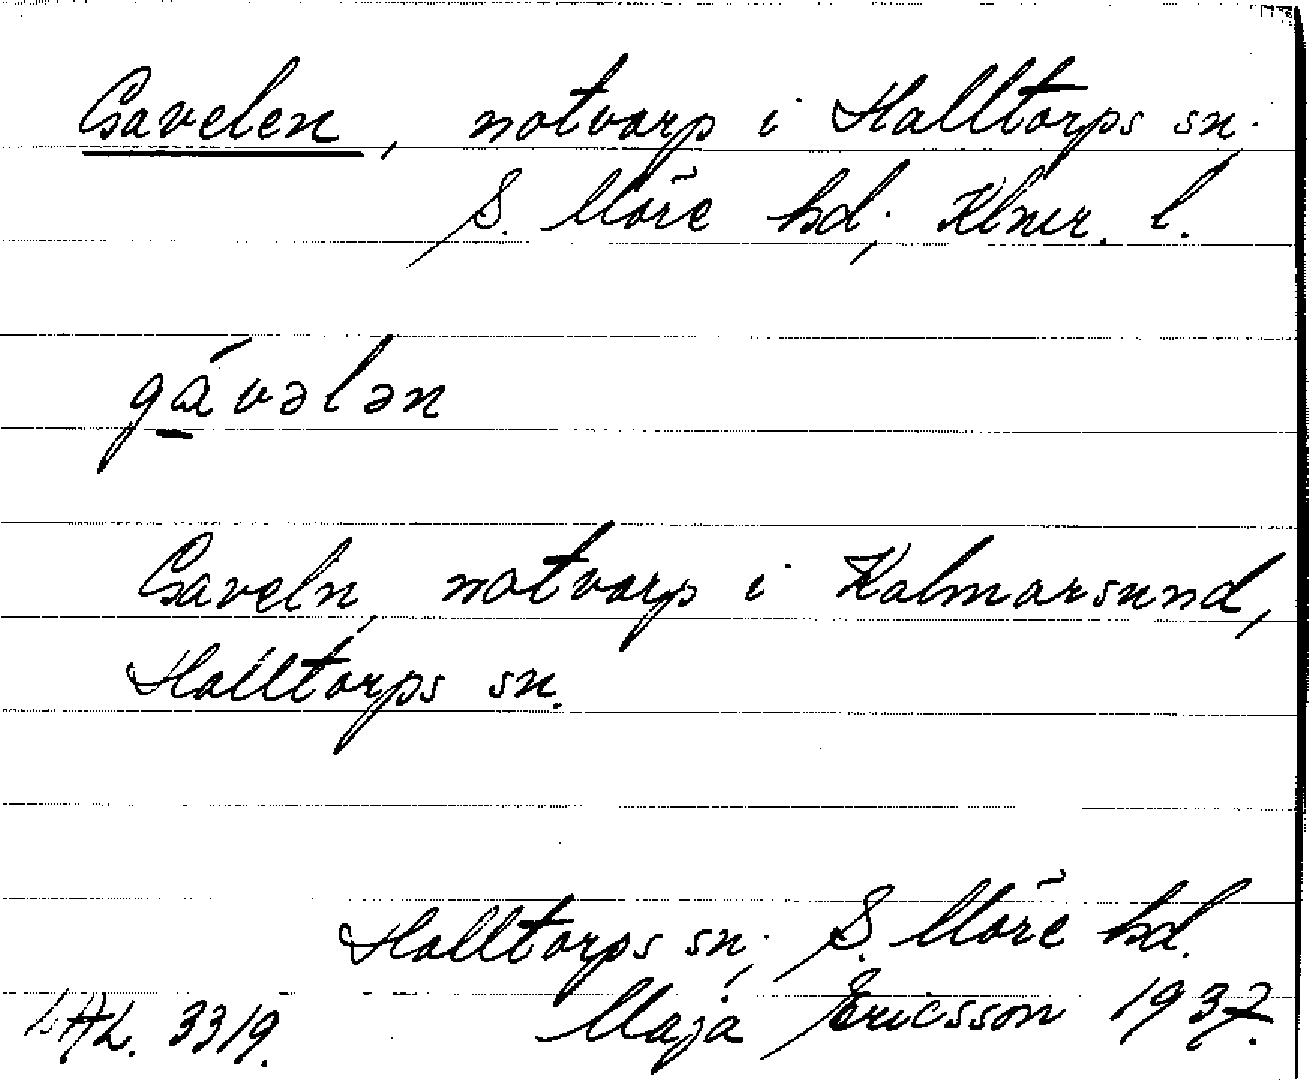 Gavelen, notvarp i Halltorps sn.
S. Möre hd; Klmr. l.
gávələn
Gaveln, notvarp i Kalmarsund,
Halltorps sn.
Halltorps sn; S. Möre hd.
LAL. 3319. Maja Ericsson 1937.